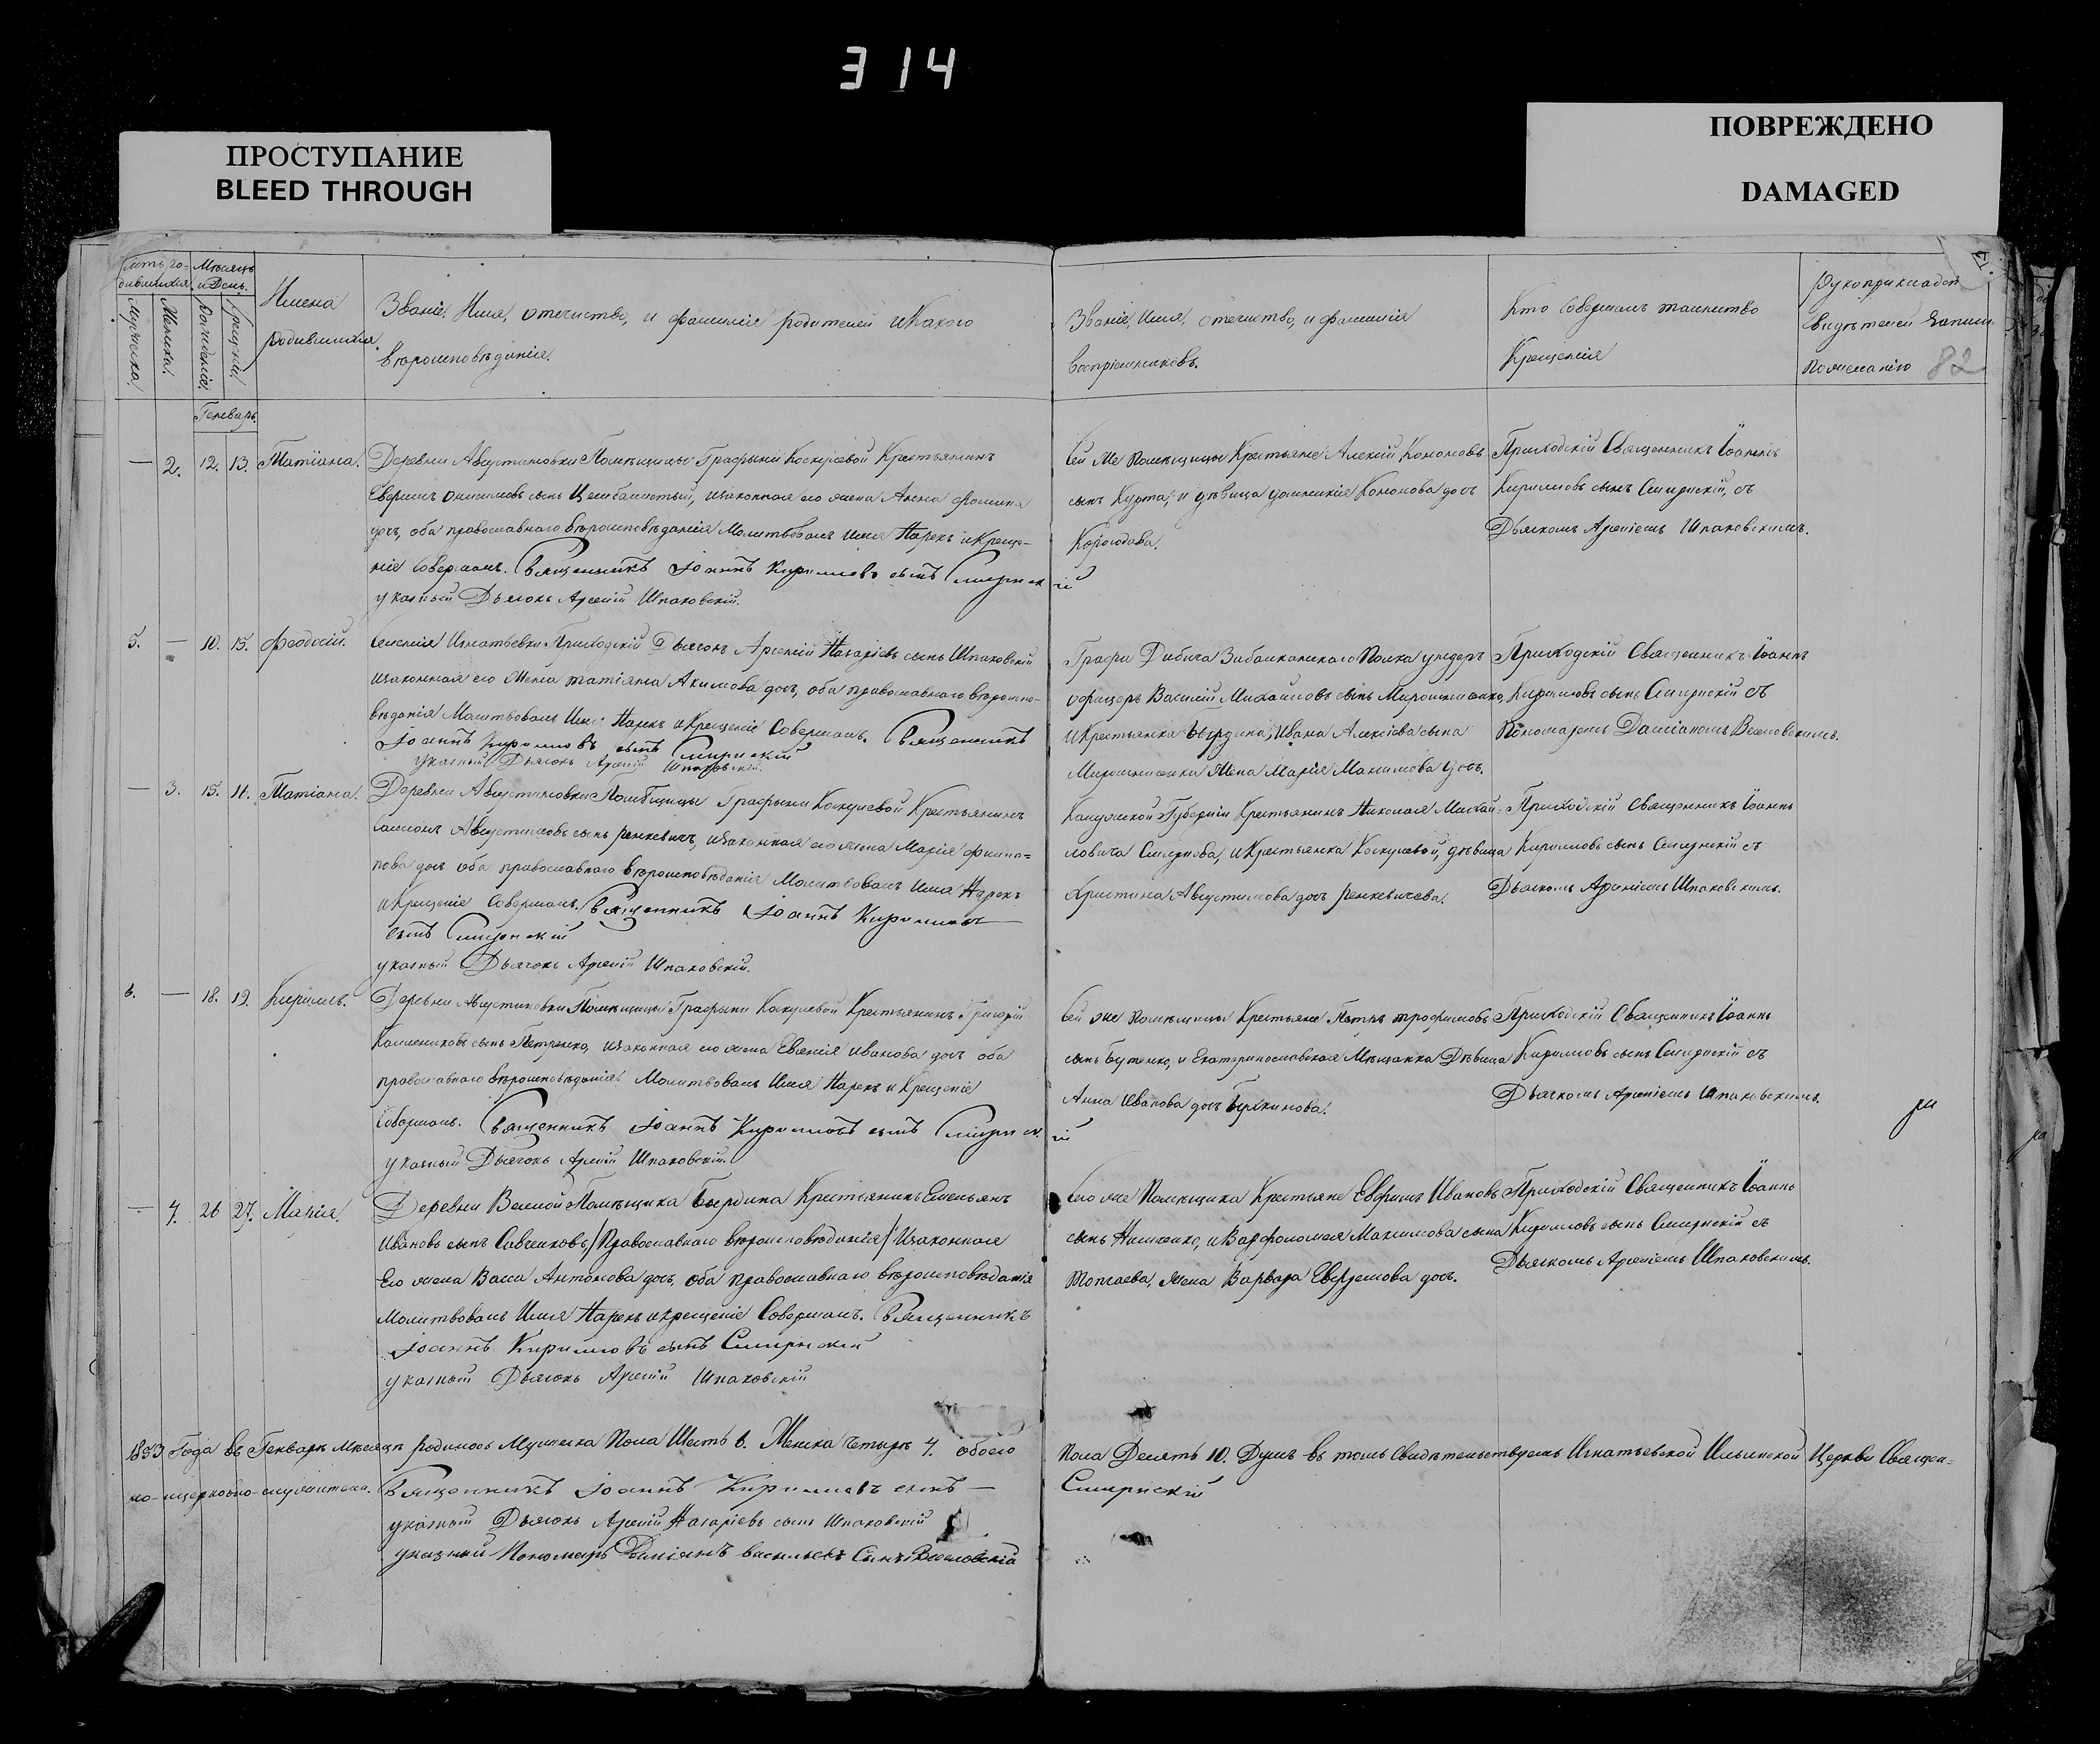 314
ПРОСТУПАНИЕ
BLEED THROUGH
ПОВРЕЖДЕНО
DAMAGED
82
Мѣсяцъ
и День.
Имена
родившихся.
Званіе, Имя, отечество, и фамилія родителей и какого
вѣроисповѣданія.
Званіе, Имя, отечество, и фамилія
воспріемниковъ.
Кто совершалъ таинство
Крещенія
Генварь.
— 2. 12. 13. Татіана.
Деревни Августиновки Помѣщицы Графыни Крестьянинъ
сынъ изаконная его жена Анна Фомина
дочь, оба православнаго вѣроисповѣданія Молитвовалъ Имя Нарекъ и Креще-
ніе Совершалъ. Священникъ Іоаннъ Кирилловъ сынъ
указный Дьячокъ Арсеній Шпаковскій.
Сей же помѣщицы Крестьяне Алексій Кононовъ
сынъ Курта, и дѣвица Кононова дочь
Приходскій Священникъ Іоаннъ
Кирилловъ сынъ съ
Дьячкомъ Арсеніемъ Шпаковскимъ.
5. — 10. 15. Феодосій.
Селенія Игнатьевки Приходскій Дьячокъ Арсеній Назаріевъ сынъ Шпаковскій
изаконная его Жена татіяна Акимова дочь, оба православнаго вѣроиспо-
вѣданія Молитвовалъ Имя Нарекъ и Крещеніе Совершалъ. Священникъ
Іоаннъ Кирилловъ сынъ
указный Дьячокъ Арсеній Шпаковскій.
Графа Дибича Забалканскаго Полка ундеръ
офицеръ Василій Михайловъ сынъ Мирошниченко,
и Крестьянка Ивана Алексіева сына
Мирошниченка Жена Марія Максимова дочь.
Приходскій Священникъ Іоаннъ
Кирилловъ сынъ съ
Пономаремъ Даміаномъ
— 3. 15. Татіана.
Деревни Августиновки Помѣщицы Графыни Крестьянинъ
Августиновъ сынъ Ренкевичъ, изаконная его жена Марія Филип-
пова дочь оба православнаго вѣроисповѣданія Молитвовалъ Имя Нарекъ
и Крещеніе Совершалъ. Священникъ Іоаннъ Кирилловъ
сынъ
указный Дьячокъ Арсеній Шпаковскій.
Калужской Губерніи Крестьянинъ Николая Михай-
ловича Смирнова, и Крестьянка дѣвица
Христина Августинова дочь Ренкевичева.
Приходскій Священникъ Іоаннъ
Кирилловъ сынъ съ
Дьячкомъ Арсеніемъ Шпаковскимъ.
6. — 18. 19. Кириллъ.
Деревни Августиновки Помѣщицы Графыни Крестьянинъ Григорій
сынъ Петренко, изаконная его жена Евгенія Иванова дочь оба
православнаго вѣроисповѣданія Молитвовалъ Имя Нарекъ и Крещеніе
Совершалъ. Священникъ Іоаннъ Кирилловъ сынъ
указный Дьячокъ Арсеній Шпаковскій.
Сей же помѣщицы Крестьяне Петръ трофимовъ
сынъ Бутенко, и Екатеринославская Мѣщанка Дѣвица
Анна Иванова дочь
Приходскій Священникъ Іоаннъ
Кирилловъ сынъ съ
Дьячкомъ Арсеніемъ Шпаковскимъ.
— 4. 26 27. Марія.
Деревни Веселой Помѣщика Крестьянинъ Емельянъ
Ивановъ сынъ Савченковъ /Православнаго вѣроисповѣданія/ изаконная
Его жена Васса Антонова дочь, оба православнаго вѣроисповѣданія
Молитвовалъ Имя Нарекъ и крещеніе Совершалъ. Священникъ
Іоаннъ Кирилловъ сынъ
указный Дьячокъ Арсеній Шпаковскій
Сего же Помѣщика Крестьяне Ефимъ Ивановъ
сынъ и Варфоломея Максимова сына
Жена Варвара дочь.
Приходскій Священникъ Іоаннъ
Кирилловъ сынъ съ
Дьячкомъ Арсеніемъ Шпаковскимъ.
1853 Года въ Генварѣ Мѣсяцѣ родилось Мужеска Пола Шесть 6. Женска Четыре 4. обоего
Пола Десять 10. Душъ въ томъ Свидѣтельствуемъ Игнатьевской Ильинской Церкви Священ-
но-ицерковно-служители. Священникъ Іоаннъ Кирилловъ сынъ —
указный Дьячокъ Арсеній Назаріевъ сынъ Шпаковскій
указный Пономарь Даміянъ Васильевъ Сынъ